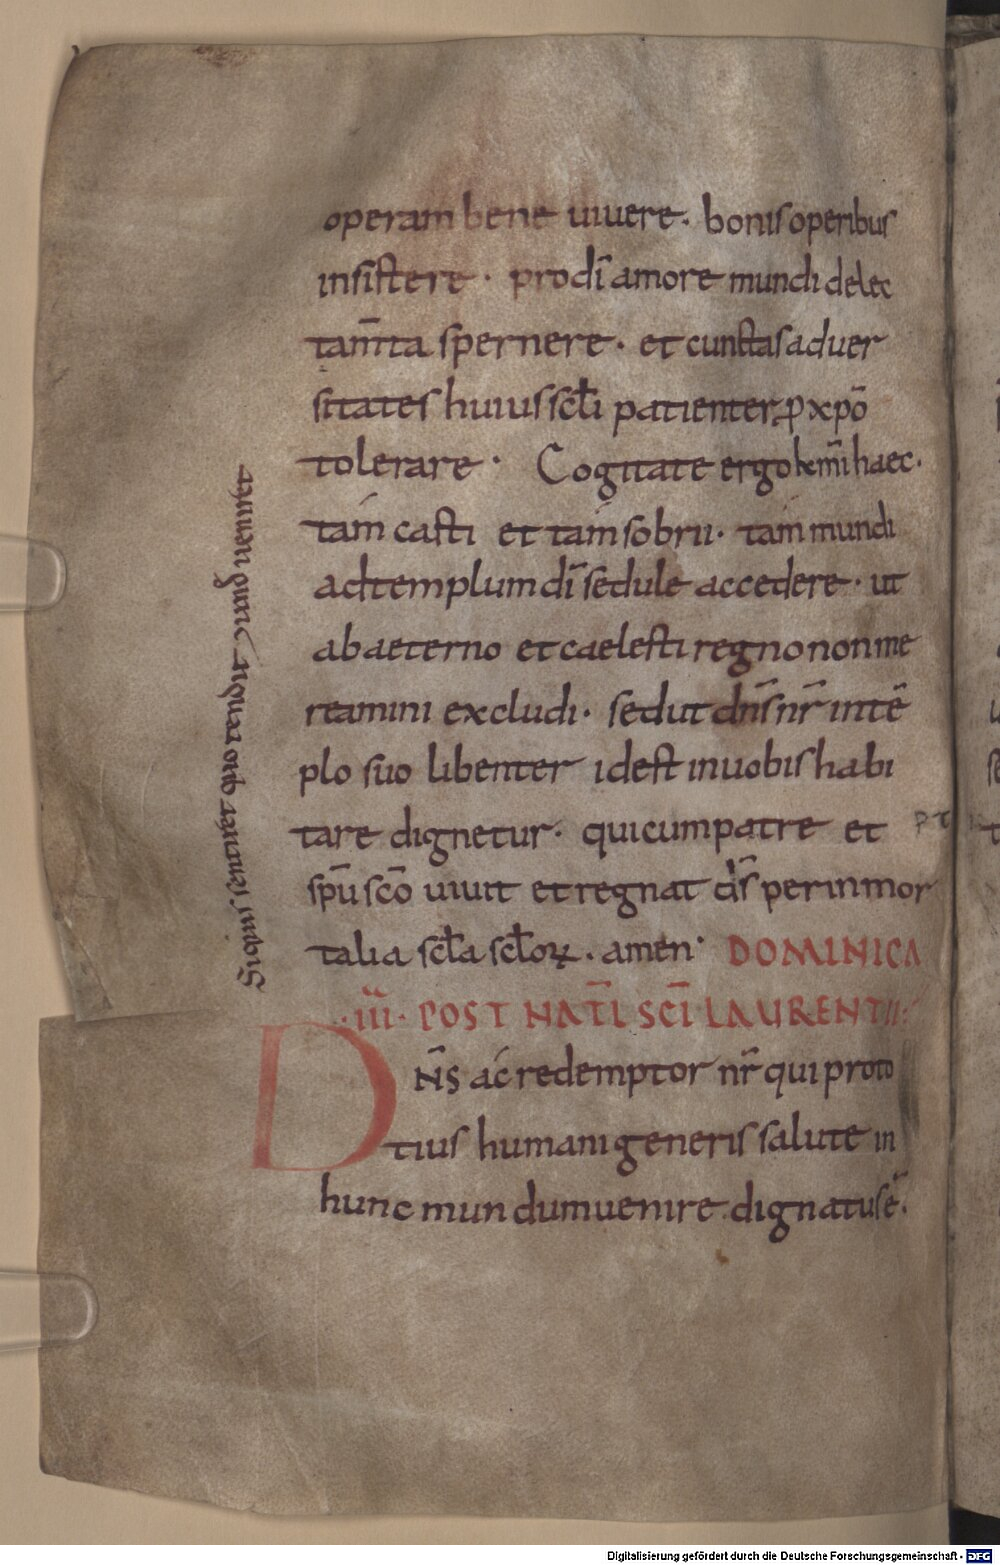 operam bene uiuere. bonis operibus
insistere. pro dī amore mundi delec
tam̄ta spernere. et cunctas aduer
sitates huius sc̄li patienter ꝓ xpō
tolerare. Cogitate ergo km̄i haec.
tam casti et tam sobrii. tam mundi
ad templum dī sedule accedere. ut
ab aeterno et caelesti regno non me
reamini excludi. sed ut dn̄s nr̄ in tē
plo suo libenter id est in uobis habi
tare dignetur. qui cum patre et
sp̄u sc̄o uiuit et regnat d̄s per inmor
talia sc̄la sc̄loꝝ. amen. DOMINICA
.III. POST NAT̄L SC̄I LAURENTII:
DN̄S ac redemptor nr̄ qui pro to
tius humani generis salute in
hunc mundum uenire dignatus ē.
Siquis sentiret quo tendit